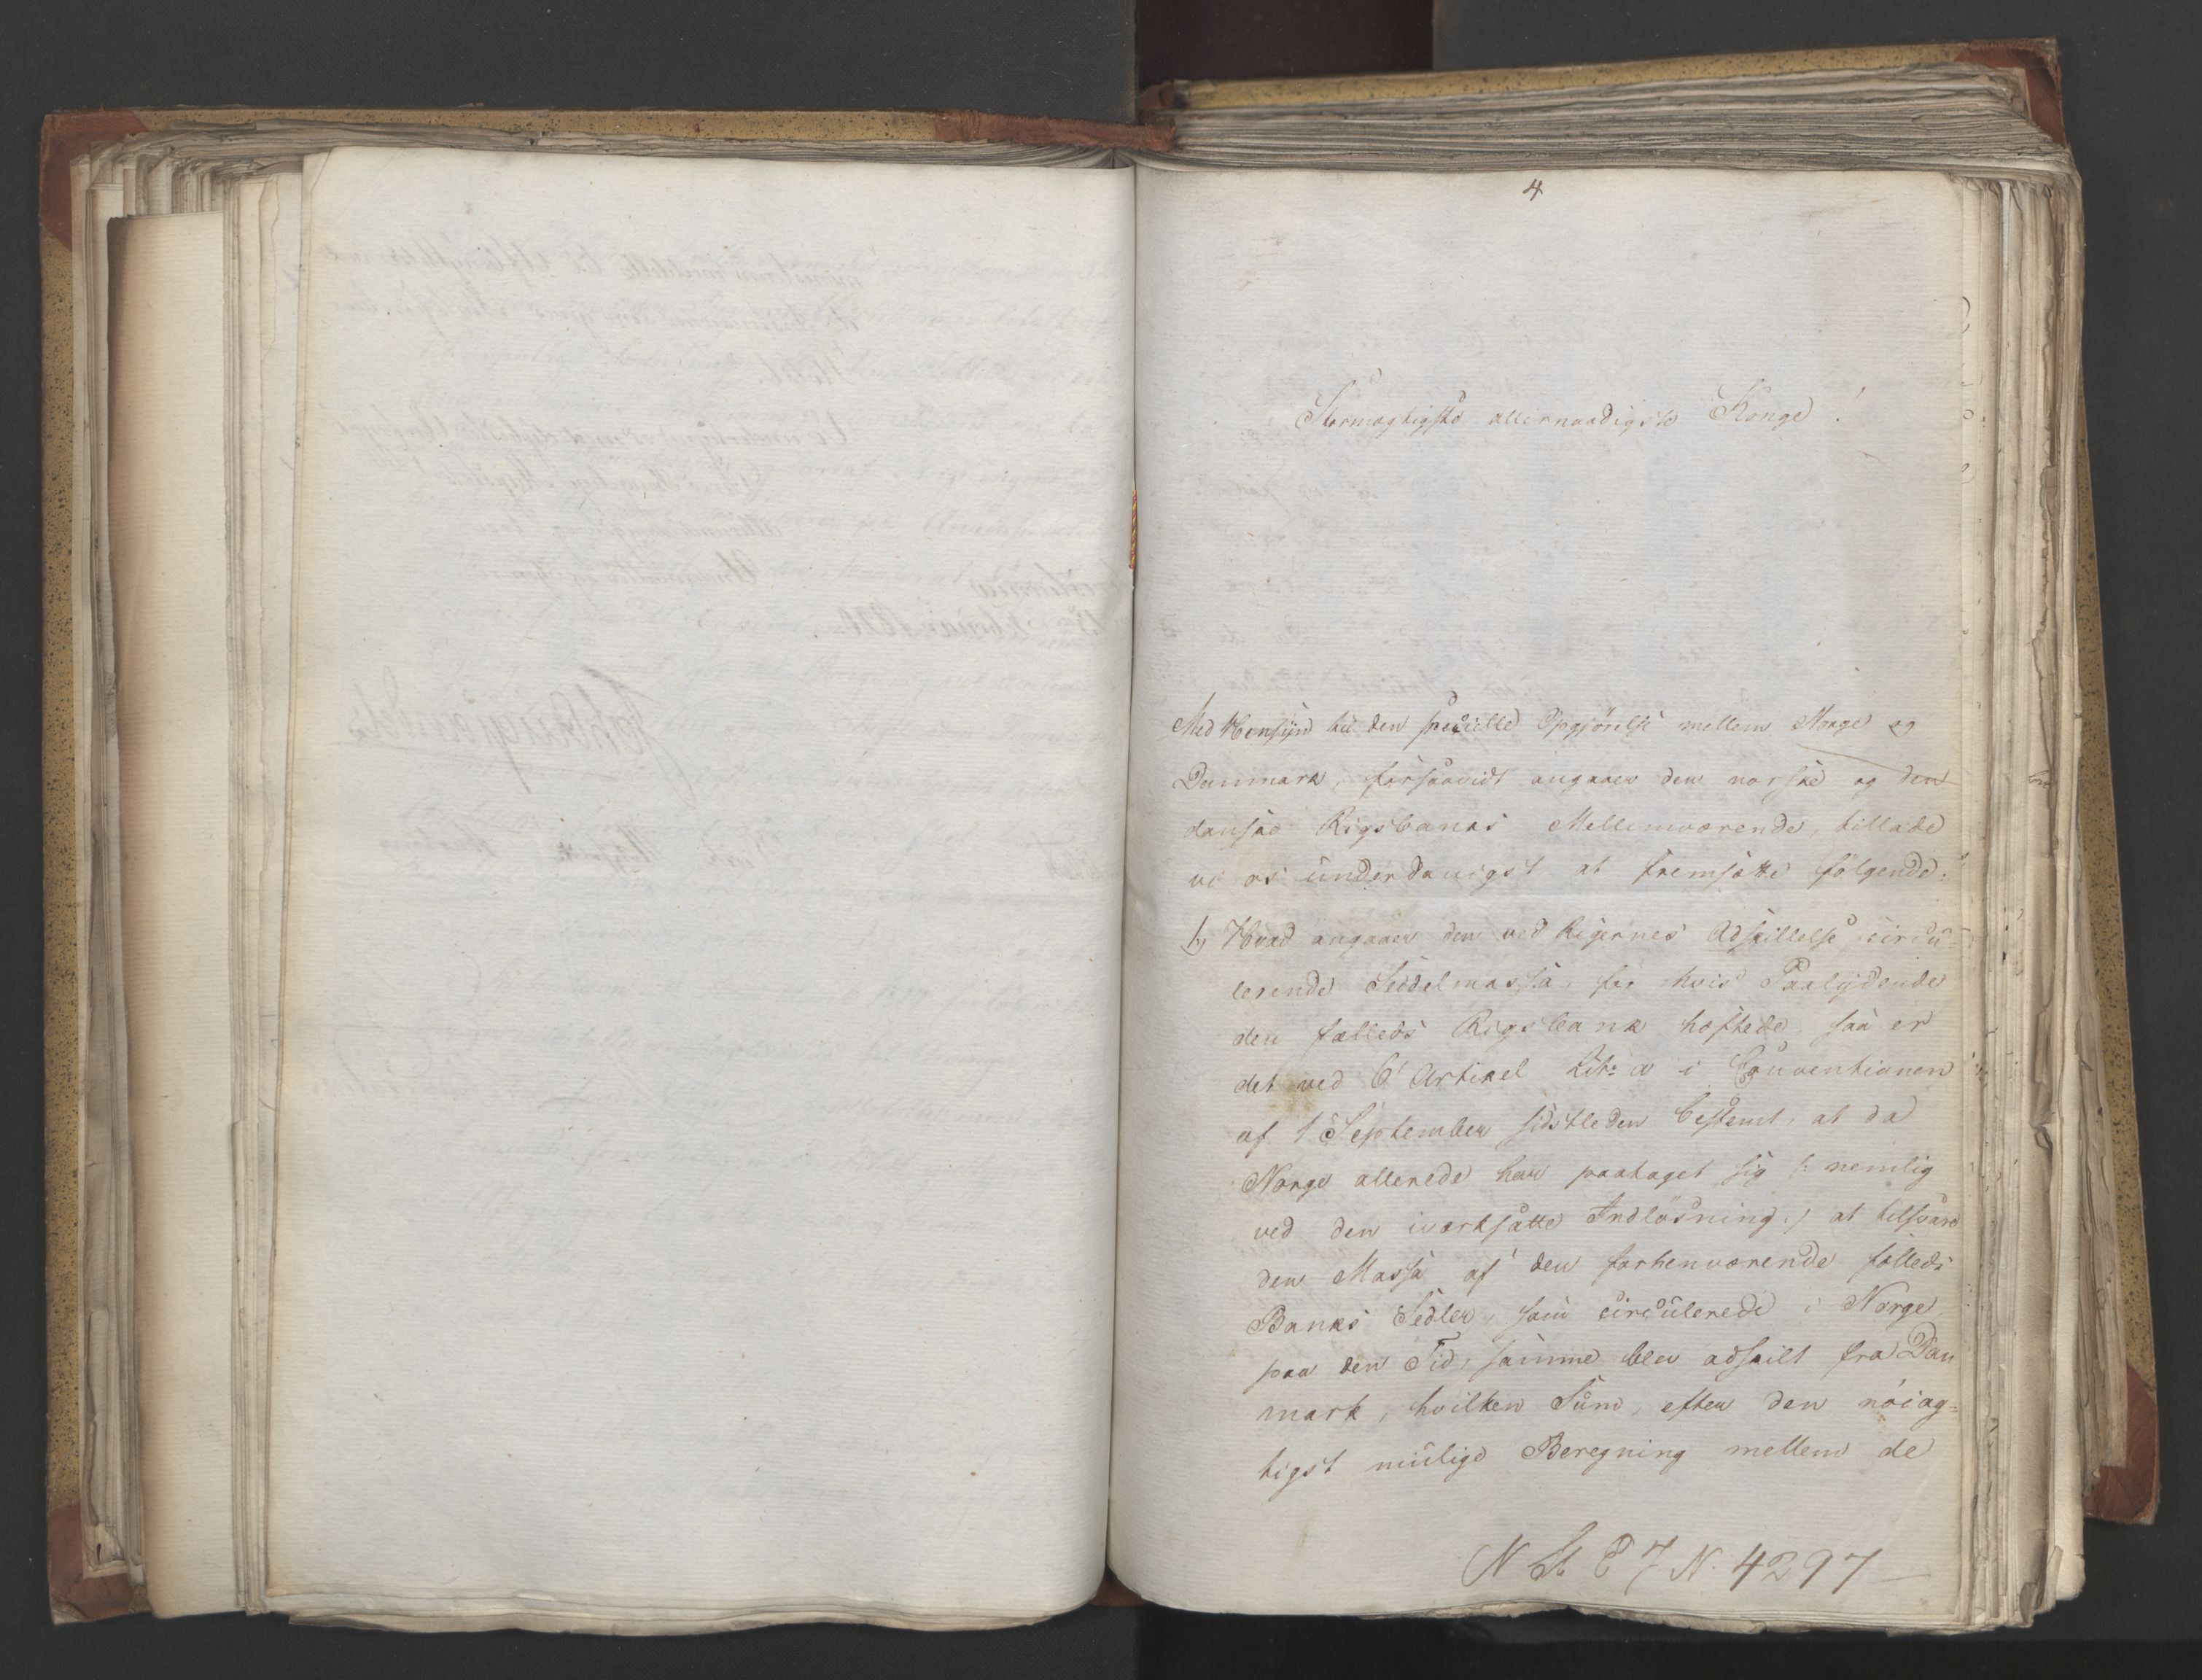 4
Stormægtigste allernaadigste Konge!
Med Hensÿn til den specielle Opgjörelse mellem Norge og
Danmark, forsaavidt angaaer den norske og den
danske Rigsbanks Mellemværende, tillade
vi os underdanigst at fremsætte følgende:
1, Hvad angaaer den ved Rigernes Adskillelse circu=
lerende Seddelmassa, for hvis Paalÿdende
den fælleds Rigsbank hæftede, saa er
det ved 6' Artikel Litr: a i Conventionen
af 1 September sidstleden bestemt, at da
Norge allerede har paataget sig /: nemlig
ved den iværksatte Indløsning :/ at tilsvare
den Massa af den forhenværende fælleds
Banks Sedler, som circulerede i Norge
paa den Tid, samme blev adskilt fra Dan
mark, hvilken Sum, efter den nöiag=
tigst muelige Beregning mellem de
N. 4297